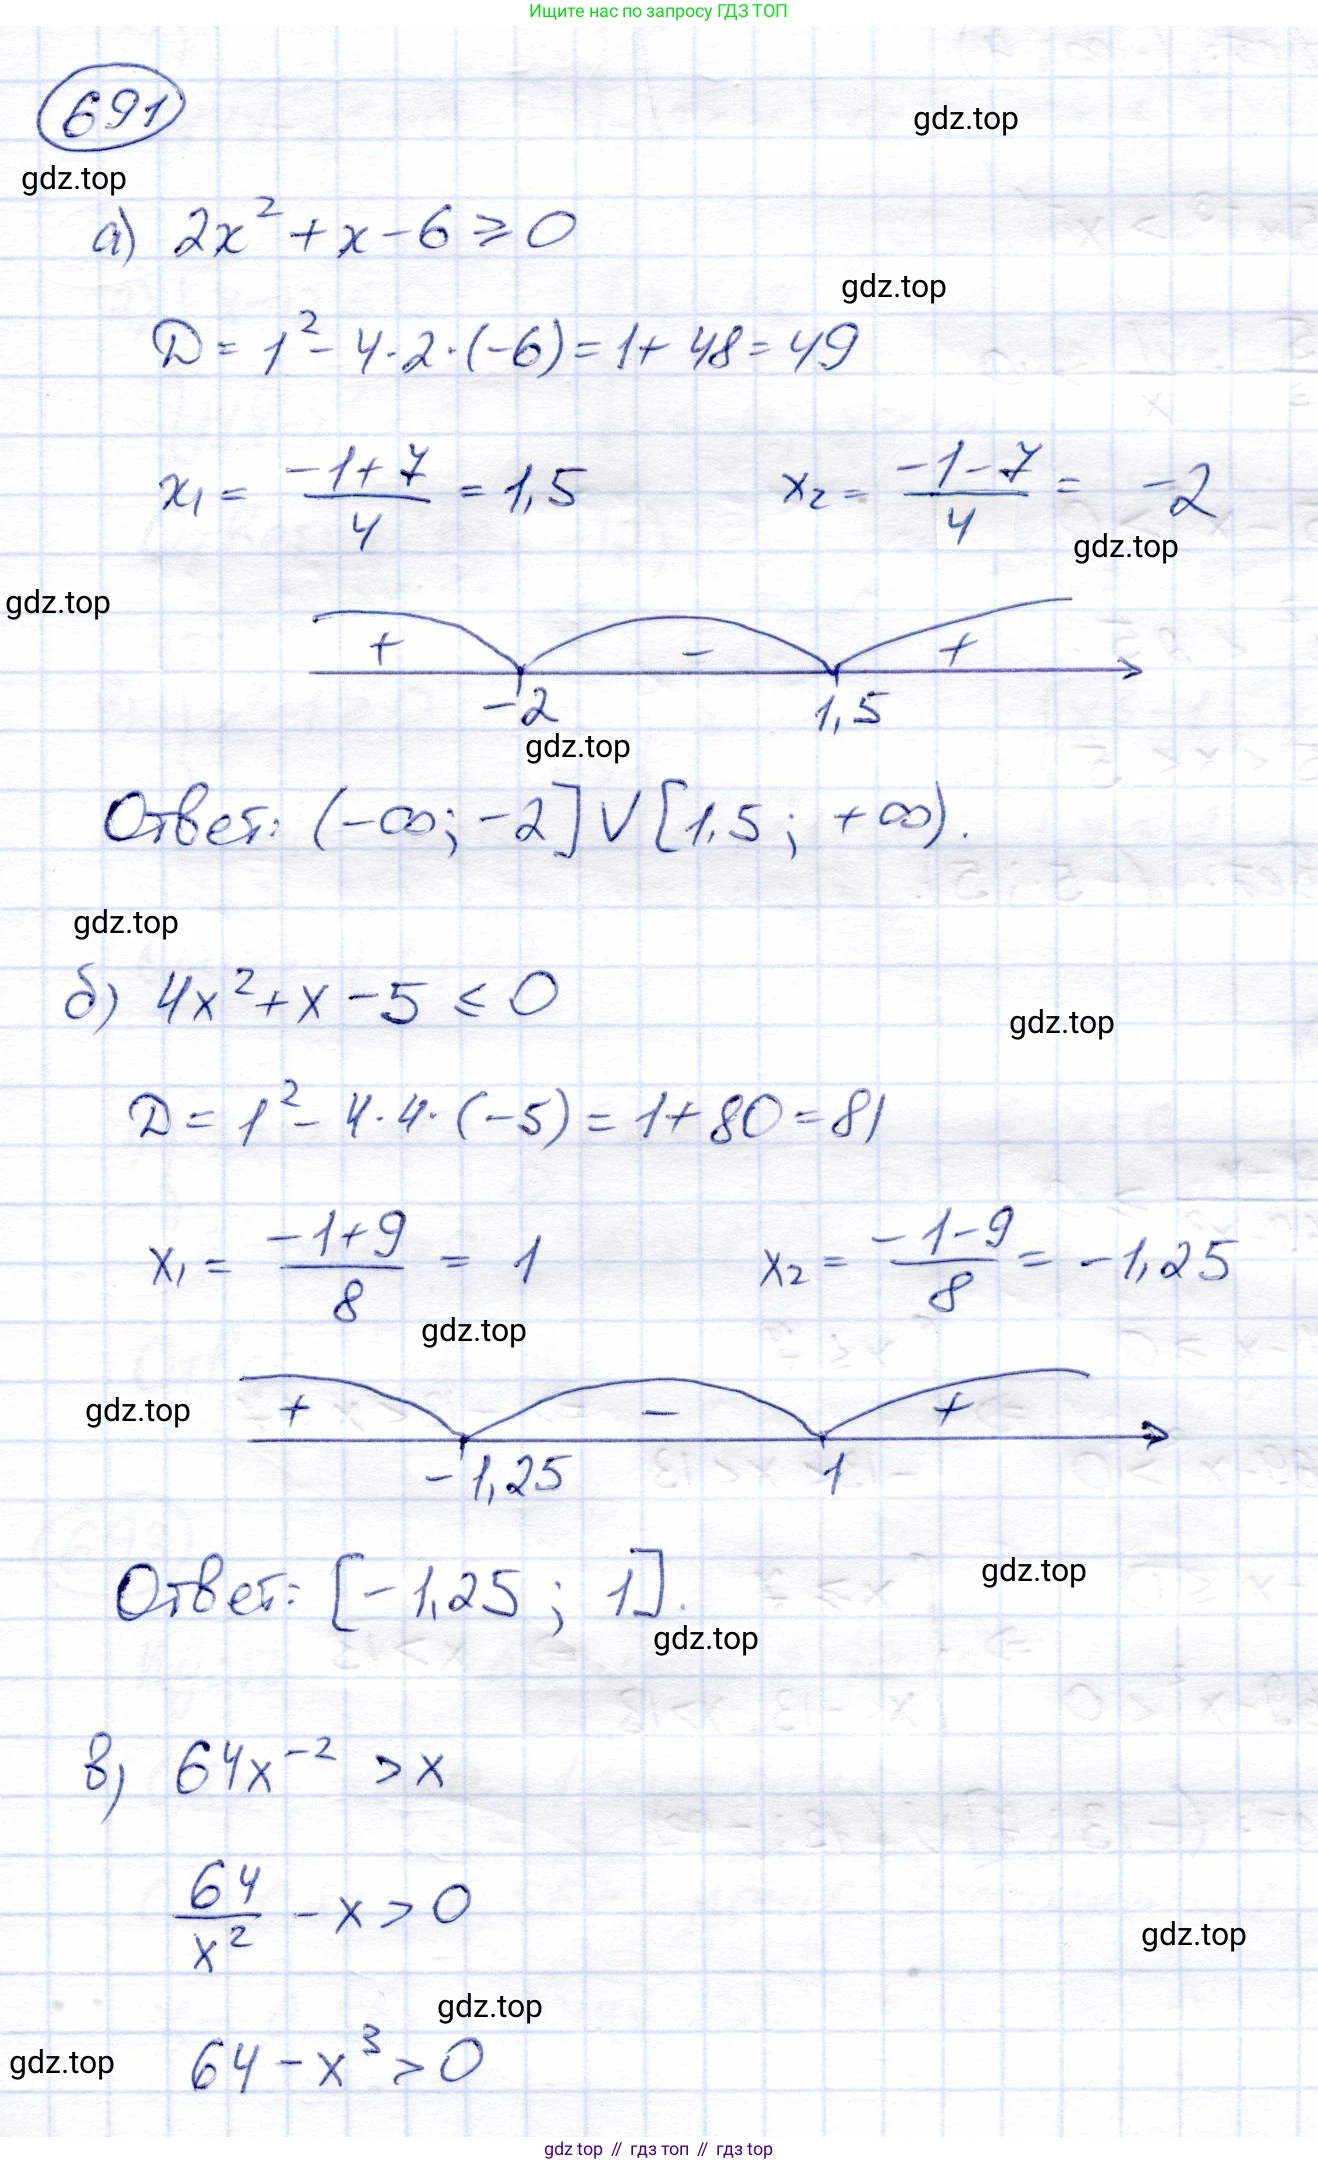 Ищите нас по запросу ГДЗ ТОП
691
gdz.top
gdz.top
а) 2x² + x - 6 ⩾ 0
gdz.top
D = 1² - 4·2·(-6) = 1 + 48 = 49
x₁ = (-1+7)/4 = 1,5    x₂ = (-1-7)/4 = -2
gdz.top
gdz.top
+ - +
-2 1,5
gdz.top
Ответ: (-∞; -2] V [1,5; +∞).
gdz.top
б) 4x² + x - 5 ⩽ 0
gdz.top
D = 1² - 4·4·(-5) = 1 + 80 = 81
x₁ = (-1+9)/8 = 1    x₂ = (-1-9)/8 = -1,25
gdz.top
gdz.top
+ - +
-1,25 1
gdz.top
Ответ: [-1,25; 1].
gdz.top
в) 64x⁻² > x
64/x² - x > 0
gdz.top
gdz.top
gdz.top
64 - x³ > 0
gdz top // гдз топ // gdz top